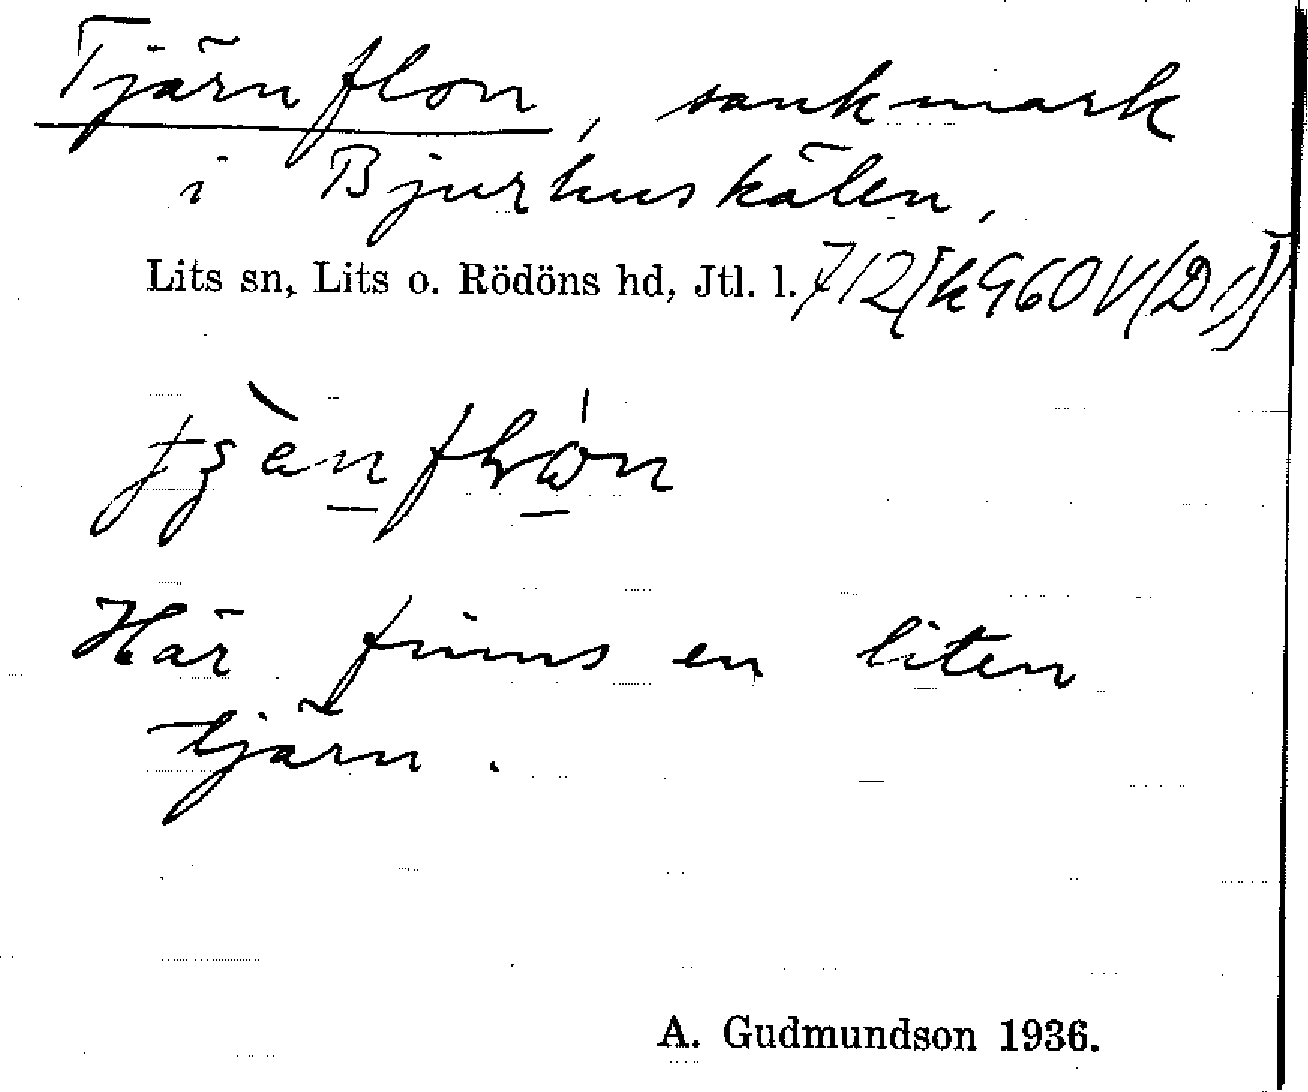 Tjärnflon, sankmark
i Bjurhuskälen,
Lits sn, Lits o. Rödöns hd, Jtl. l.
Här finns en liten
tjärn.
A. Gudmundson 1936.